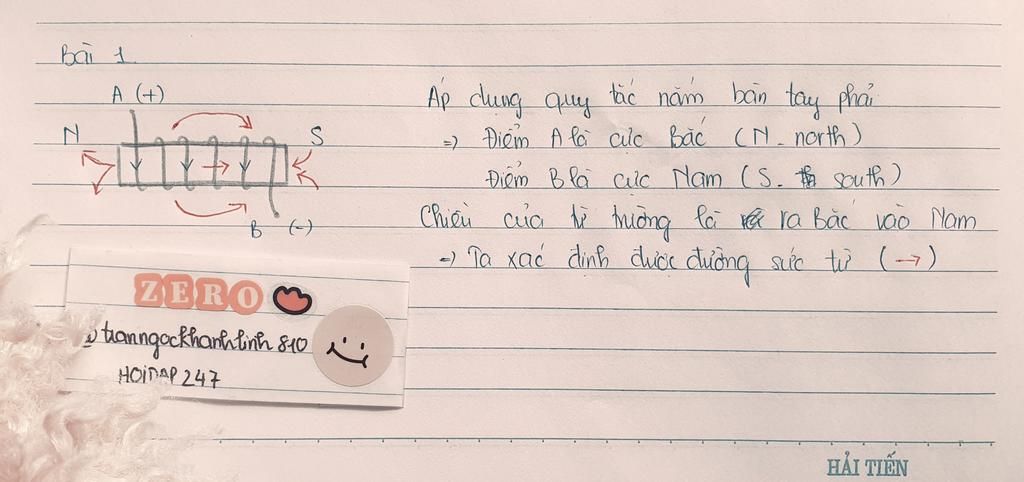 Bài 1
A (+)
N
S
B (-)
Áp dụng quy tắc nắm bàn tay phải
=) Điểm A là cực Bắc (N. north)
Điểm B là cực Nam (S. south)
Chiều của từ trường là ra Bắc vào Nam
=) Ta xác định được đường sức từ (→)
ZERO
tranngockhanhlinh810
HOIDAP247
HẢI TIẾN